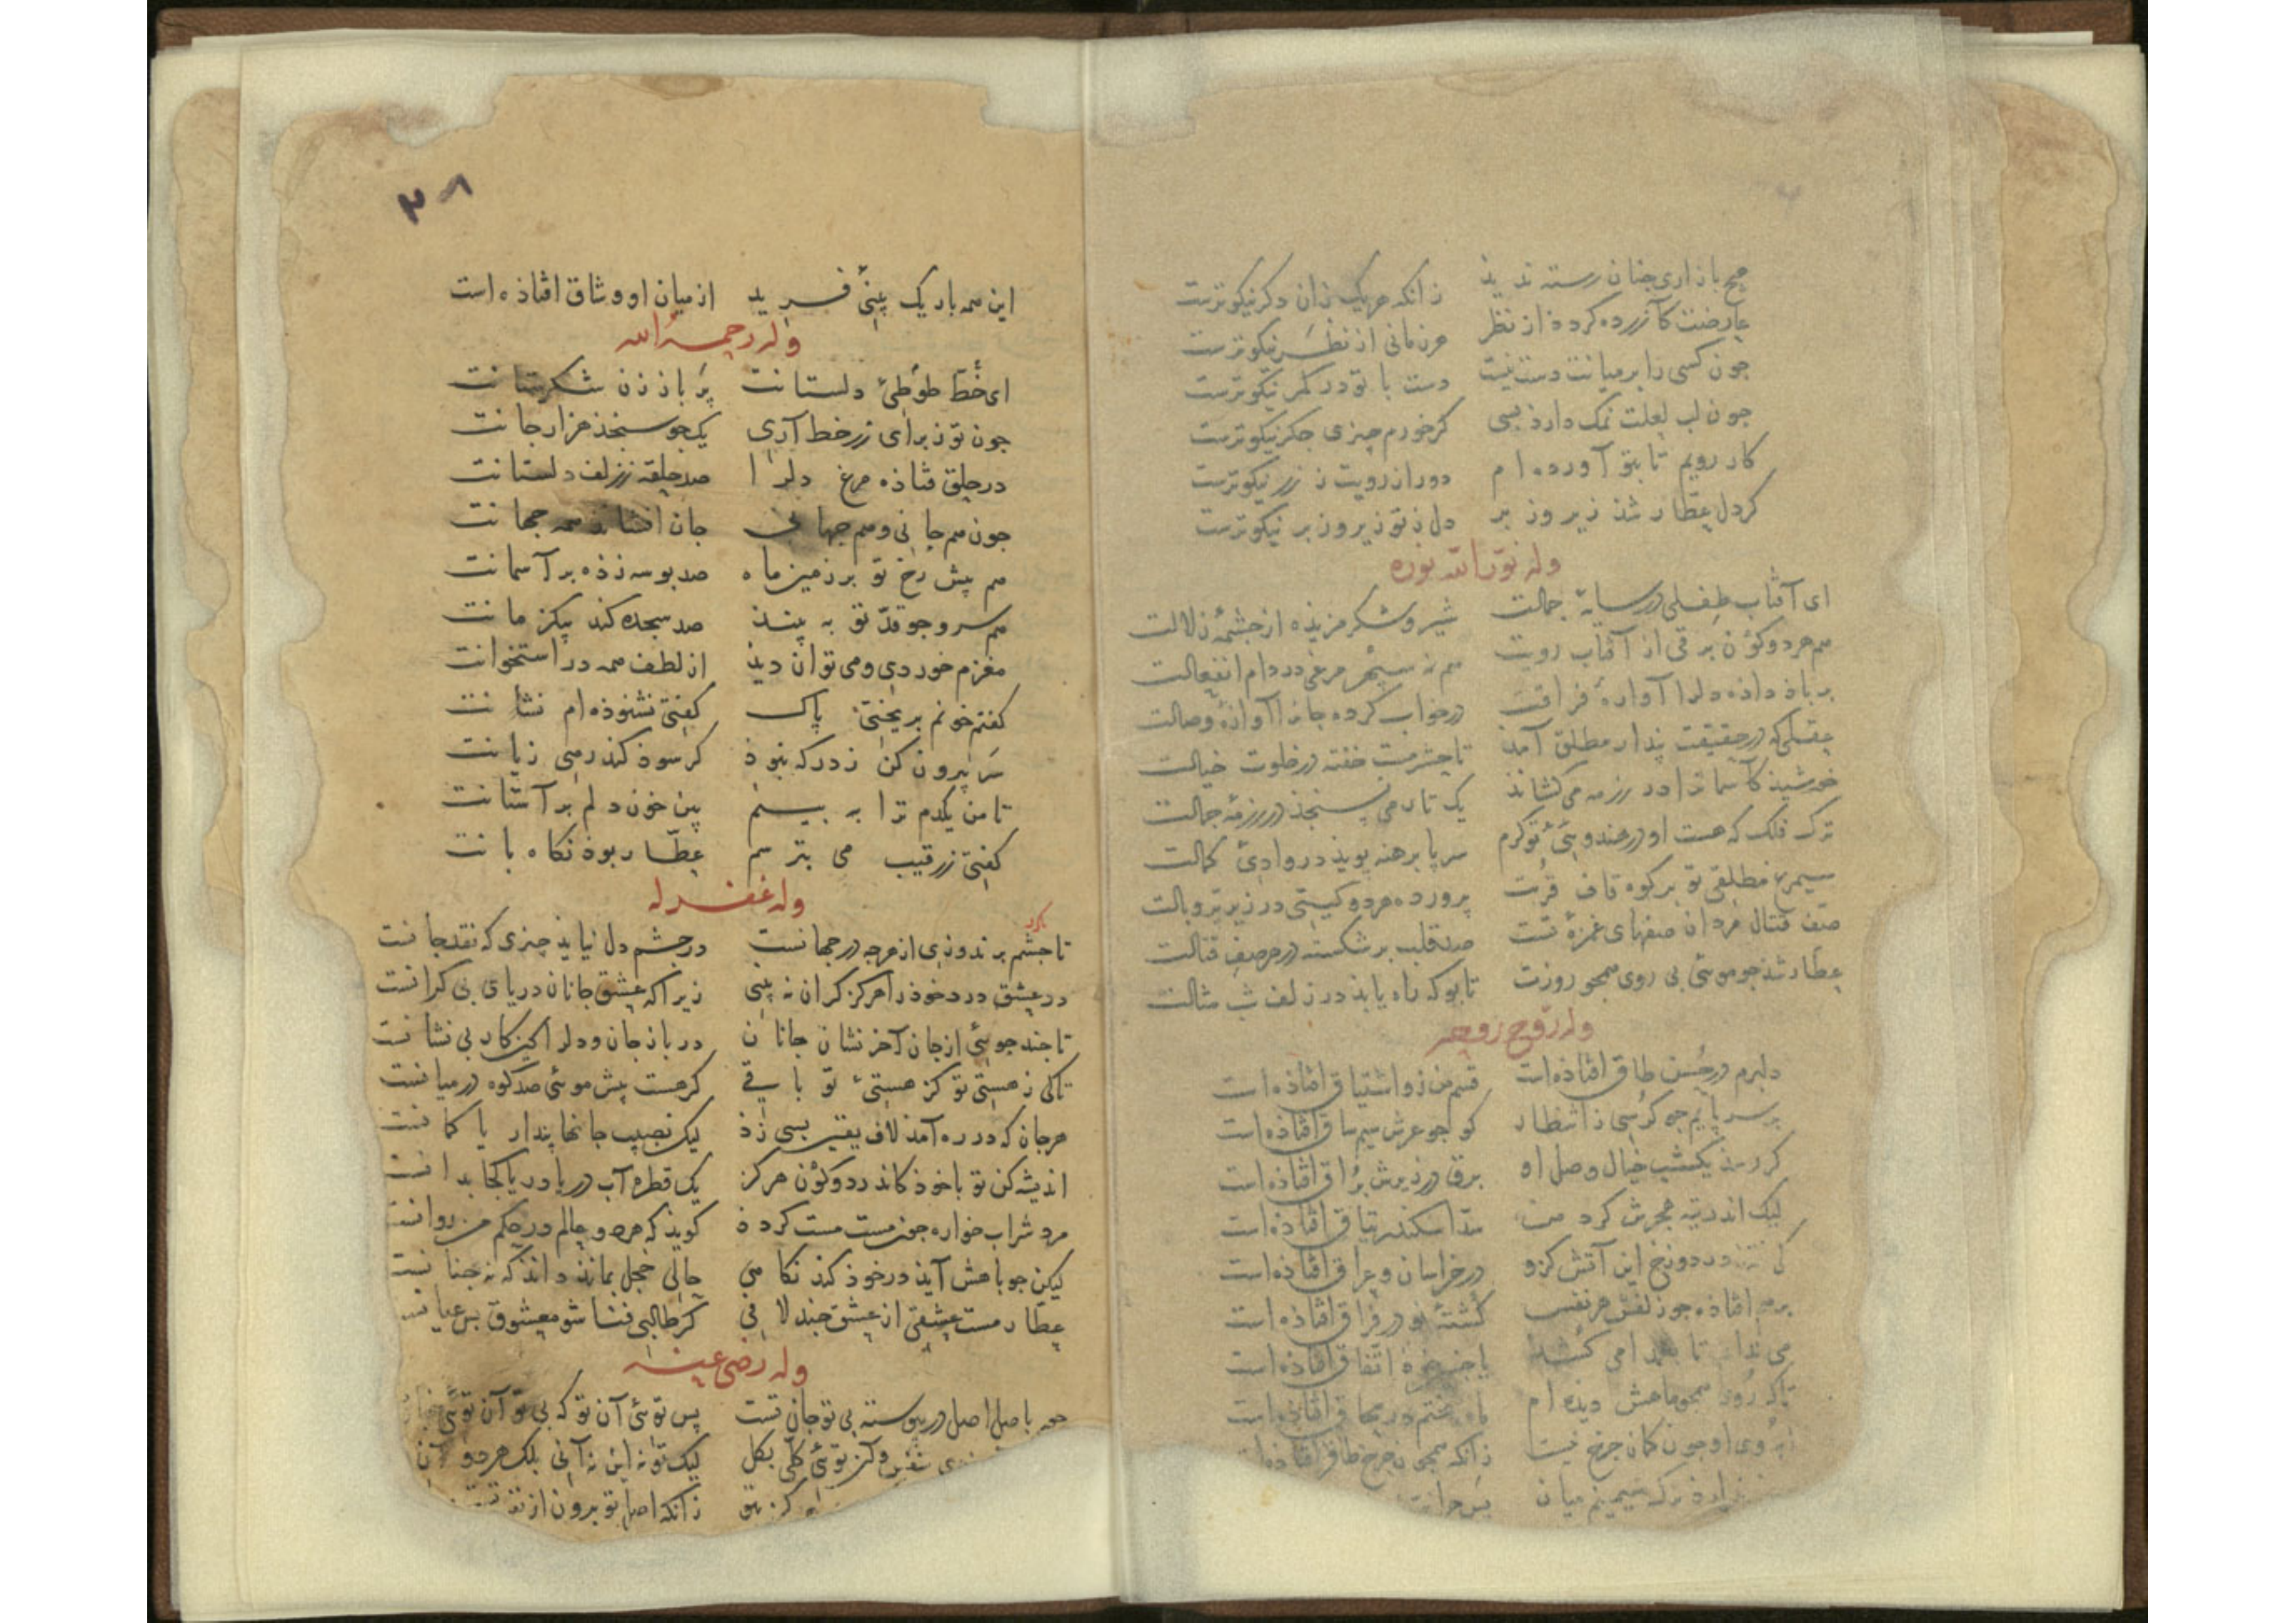 هیچ بازاری چنان رسته ندید زانکه هر یک زان دگر نیکوترست
عارضت کازرده کرده از نظر هر زمانی از نظر نیکوترست
جون کسی را بر میانت دست نیست دست با تو در کمر نیکوترست
جون لب لعلت نمک دارد بسی گر خورم چیزی جگر نیکوترست
کار رویم تا بتو آورده ام دور از رویت ز زر نیکوترست
گر دل عطار شذ زیر و زبر دل ز تو زیر و زبر نیکوترست
وله نور الله نوره
ای آفتاب طفلی در سایهٔ جمالت شیر و شکر مزیذه از جشمهٔ زلالت
هم هر دو کون برقی از آفتاب رویت هم نه سپهر مرغی در دام انفعالت
بر باذ داذه دل را آوازهٔ فراقت در خواب کرده جان را آوازهٔ وصالت
عقلی که در حقیقت پندار مطلق آمد تا حشر مست خفته در خلوت خیالت
خورشید کاسمان را در رزمه می کشاند یک تار می نسنجد در رزمهٔ جمالت
ترک فلک که هست او در هندویی تو کرم سر پا برهنه پوید در وادی کمالت
سیمرغ مطلقی تو بر کوه قاف قربت پرورده هر دو گیتی در زیر پر و بالت
صف قتال مردان صفهای غمزهٔ تست صد قلب بر شکسته در هر صف قتالت
عطار شذ جو مویی بی روی همجو روزت تا بو که راه یابذ در زلف شب مثالت
وله روح روحه
دلبرم در حسن طاق افتاذه است قسم من زو اشتیاق افتاذه است
بر سر پایم جو کرسی ز انتظار کو جو عرش سیم ساق افتاذه است
گر رسذ یک شب خیال وصل او برق در زیرش براق افتاذه است
لیک اندر تیه هجرش گرد من سد اسکندر یتاق افتاذه است
در دوزخ این آتش کزو در خراسان و عراق افتاذه است
افتاذه جو زلفش هر نفس کشتهٔ او در فراق افتاذه است
تا می کشذ با جنین اتفاق افتاذه است
تا که روی همجو ماهش دیده ام ماه بختم در محاق افتاذه است
ابروی او جون کمان جرخ نیست زانکه همجون جرخ طاق افتاذه
میان بس جرا
۳۸
این همه باریک بینی فرید از میان او وثاق افتاذه است
وله رحمه الله
ای خط طوطی دلستانت پر باز زن شکرستانت
جون تو ز برای زر خط آری یک جو سنجذ هزار جانت
در حلق فتاذه مرغ دل را صد حلقه ز زلف دلستانت
جون هم جانی و هم جهانی جان افشاند همه جهانت
هم پیش رخ تو بر زمین ماه صد بوسه زذه بر آسمانت
هم سرو جو قد تو به بیند صد سجده کند بیک زمانت
مغزم خوردی و می توان دید از لطف همه در استخوانت
کفتم خونم بریختی پاک کفتی نشنوذه ام نشانت
سر بیرون کن ز در که نبوذ کر سوذ کند رهی زیانت
تا من یکدم ترا به بینم بین خون دلم بر آستانت
کفتی ز رقیب می بترسم عطار بوذ نکاه بانت
وله غفر له
تا جشم بر ندوزی از هرجه در جهانست در جشم دل نیاید چیزی که نقد جانست
در عشق درد خوذ را هرکز کران نه بینی زیرا که عشق جانان دریای بی کرانست
تا جند جویی از جان آخر نشان جانان در باز جان و دل را کین کار بی نشانست
تا کی ز هستی تو کز هستی تو باقی کر هست بیش مویی صد کوه در میانست
هر جان که در ره آمد لاف یقین بسی زذ لیک نصیب جانها پندار یا کمانست
اندیشه کن تو با خوذ کاندر دو کون هرکز یک قطره آب دریا دریا کجا بدانست
مرد شراب خواره جون مست مست کردذ کویذ که هر دو عالم در حکم من روانست
لیکن جو باهش آیذ در خوذ کنذ نکاهی حالی خجل بماند داند که نه جنانست
عطار مست عشقی از عشق جند لافی کر طالبی فنا شو معشوق بس عیانست
وله رضی عنه
با اصل اصل در پیوسته بی تو جان تست پس تویی آن تو که بی تو آن تویی
کز تویی کلی بکل لیک تو نه این نه آنی بلک هر دو آن
زانکه اصل تو برون از